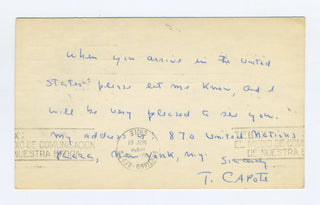 When you arrive in the United
States please let me know, and I
will be very pleased to see you.
My address is 870 United Nations
Plaza, New York, N.Y.
Sincerely
T. Capote
EL MEDIO DE COMUNICACION
DE NUESTRA